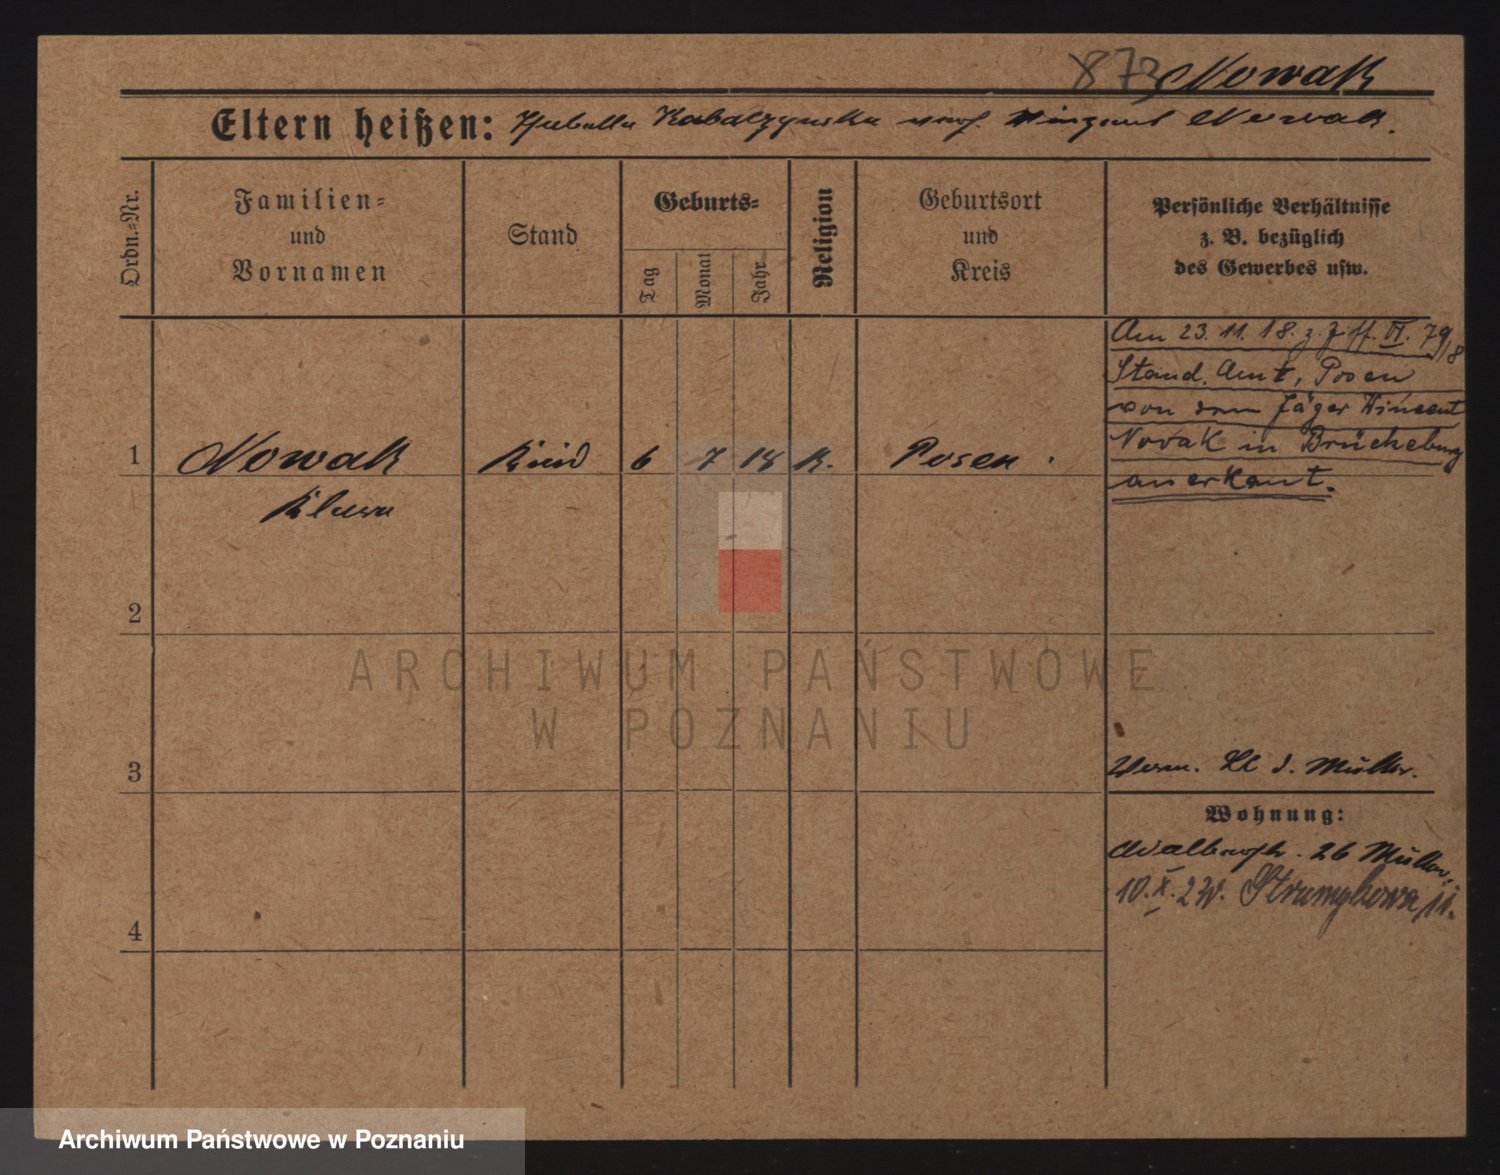 873 Nowak
Eltern heißen: Kabalzynska Nowak.
Ordn.=Nr.
Familien=
und
Vornamen
Stand
Geburts=
Tag
Monat
Jahr
Religion
Geburtsort
und
Kreis
Persönliche Verhältnisse
z. B. bezüglich
des Gewerbes usw.
Am 23. 11. 18. z. Ziff. VI. 79/18
Stand. Amt, Posen
von dem Jäger Vincent
Novak in Brückeburg
anerkant.
1 Nowak Kind 6 7 18 K. Posen.
2
3
Müller.
Wohnung:
26 Müller.
10.X.20. Strumykowa 11.
4
ARCHIWUM PAŃSTWOWE
W POZNANIU
Archiwum Państwowe w Poznaniu